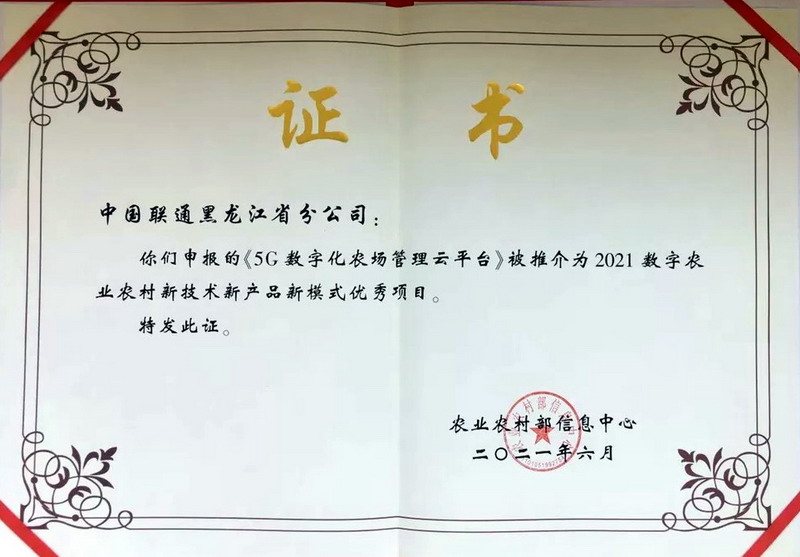 证 书
中国联通黑龙江省分公司：
你们申报的《5G 数字化农场管理云平台》被推介为 2021 数字农
业农村新技术新产品新模式优秀项目。
特发此证。
农业农村部信息中心
二〇二一年六月